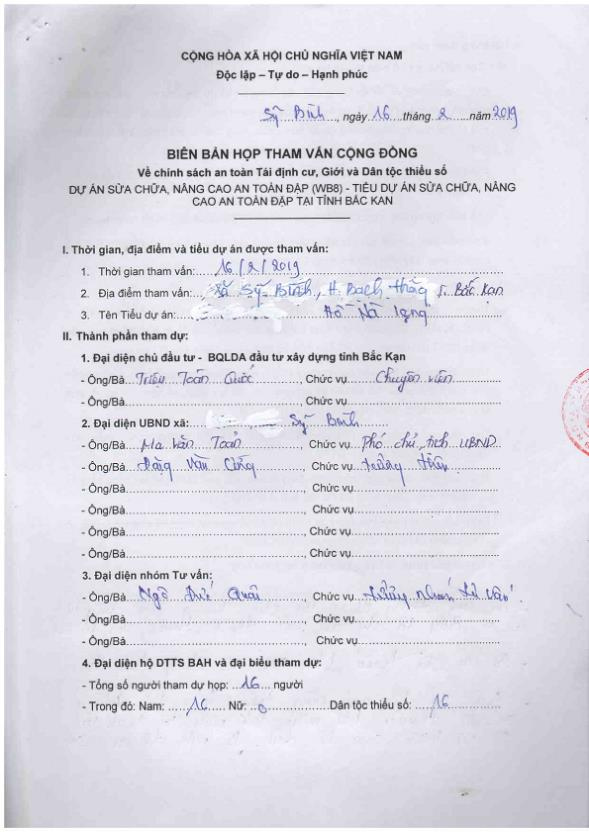 CỘNG HÒA XÃ HỘI CHỦ NGHĨA VIỆT NAM
Độc lập – Tự do – Hạnh phúc
Sỹ Bình, ngày 16 tháng 2 năm 2019
BIÊN BẢN HỌP THAM VẤN CỘNG ĐỒNG
Về chính sách an toàn Tái định cư, Giới và Dân tộc thiểu số
DỰ ÁN SỬA CHỮA, NÂNG CAO AN TOÀN ĐẬP (WB8) - TIỂU DỰ ÁN SỬA CHỮA, NÂNG
CAO AN TOÀN ĐẬP TẠI TỈNH BẮC KẠN
I. Thời gian, địa điểm và tiểu dự án được tham vấn:
1. Thời gian tham vấn: 16/2/2019
2. Địa điểm tham vấn: Xã Sỹ Bình, H. Bạch Thông T. Bắc Kạn
3. Tên Tiểu dự án: Hồ Nà
II. Thành phần tham dự:
1. Đại diện chủ đầu tư - BQLDA đầu tư xây dựng tỉnh Bắc Kạn
- Ông/Bà Triệu Toán Quốc, Chức vụ Chuyên viên
- Ông/Bà, Chức vụ
2. Đại diện UBND xã: Sỹ Bình
- Ông/Bà Ma Văn Toản, Chức vụ Phó chủ tịch UBND
- Ông/Bà Đặng Văn, Chức vụ trưởng thôn
- Ông/Bà, Chức vụ
- Ông/Bà, Chức vụ
- Ông/Bà, Chức vụ
- Ông/Bà, Chức vụ
3. Đại diện nhóm Tư vấn:
- Ông/Bà Ngô Đức, Chức vụ trưởng nhóm tư vấn
- Ông/Bà, Chức vụ
- Ông/Bà, Chức vụ
4. Đại diện hộ DTTS BAH và đại biểu tham dự:
- Tổng số người tham dự họp: 16 người
- Trong đó: Nam: 16 Nữ: 0 Dân tộc thiểu số: 16